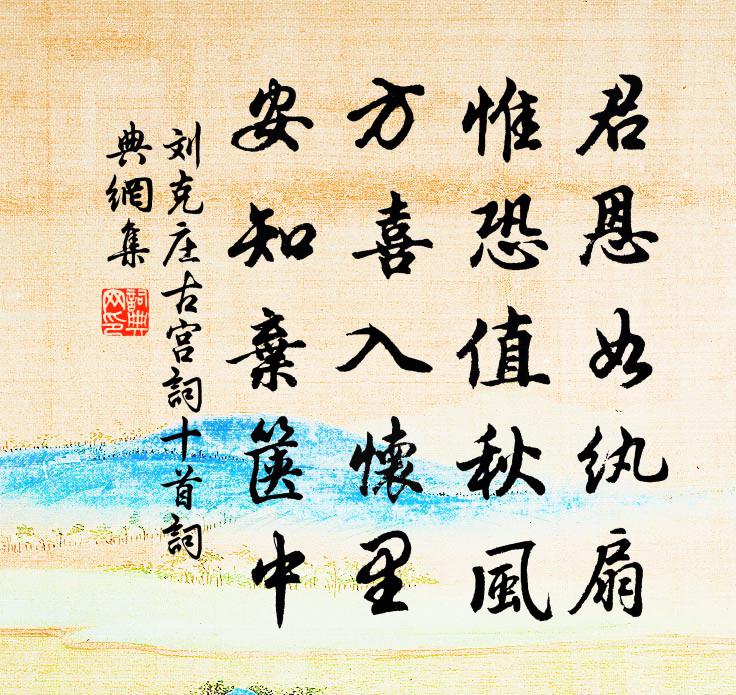 君恩如纨扇
惟恐值秋風
方喜入懷里
安知棄篋中
刘克庄古宫詞十首詞
典網集
詞典网印